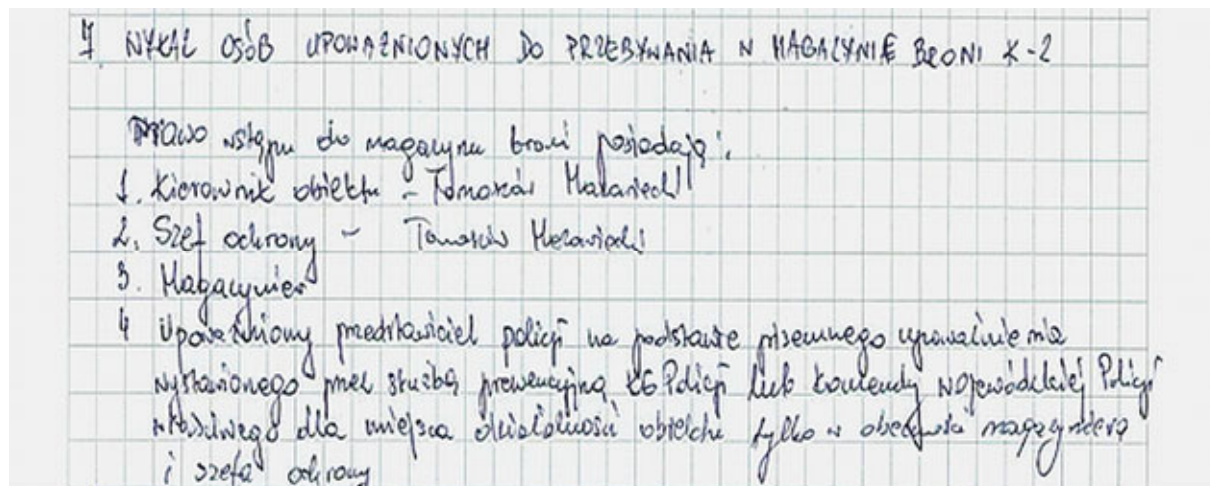 7 WYKAZ OSÓB UPOWAŻNIONYCH DO PRZEBYWANIA W MAGAZYNIE BRONI K-2
Prawo wstępu do magazynu broni posiadają:
1. Kierownik obiektu - Tomasz
2. Szef ochrony -
3. Magazynier
4 Upoważniony przedstawiciel policji na podstawie pisemnego upoważnienia
wystawionego przez służbę prewencyjną KG Policji lub Komendy Wojewódzkiej Policji
właściwego dla miejsca działalności obiektu tylko w obecności magazyniera
i szefa ochrony